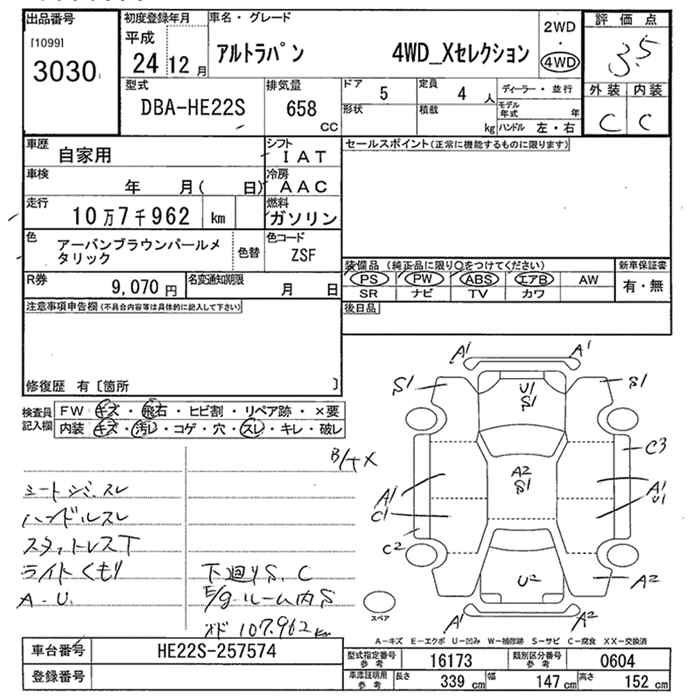 出品番号
[1099]
3030
初度登録年月
平成
24 12 月
車名・グレード
アルトラパン 4WD_Xセレクション
2WD
・
4WD
評価点
3.5
外装 内装
C C
型式
DBA-HE22S
排気量
658
CC
ドア 5
形状
定員 4 人
積載 kg
ディーラー・並行
モデル年式 年
ハンドル 左・右
車歴 自家用
シフト IAT
車検 年 月( 日)
冷房 AAC
走行 10万7千962 km
燃料 ガソリン
色 アーバンブラウンパールメタリック
色替
色コード ZSF
R券 9,070 円
名変通知期限 月 日
セールスポイント(正常に機能するものに限ります)
装備品 (純正品に限り〇をつけてください)
PS PW ABS エアB AW
SR ナビ TV カワ
新車保証書
有・無
後日品
注意事項申告欄(不具合内容等は具体的に記入して下さい)
修復歴 有〔箇所 〕
検査員記入欄
FW キズ・飛石・ヒビ割・リペア跡・×要
内装 キズ・汚レ・コゲ・穴・スレ・キレ・破レ
シートシミ.スレ
ハンドルスレ
スタットレスT
ライトくもり
A-U.
下廻りS.C
E/gルーム内S
オド 107.962km
A1 A1
S1 S1
U1
S1
C3
A2
S1
A1
C1
C2
A1
U1
U2
A2
A1 A2
スペア
A-キズ E-エクボ U-凹み W-補修跡 S-サビ C-腐食 XX-交換済
車台番号 HE22S-257574
登録番号
型式指定番号 参考 16173
類別区分番号 参考 0604
車庫証明用 参考 長さ 339 cm 幅 147 cm 高さ 152 cm